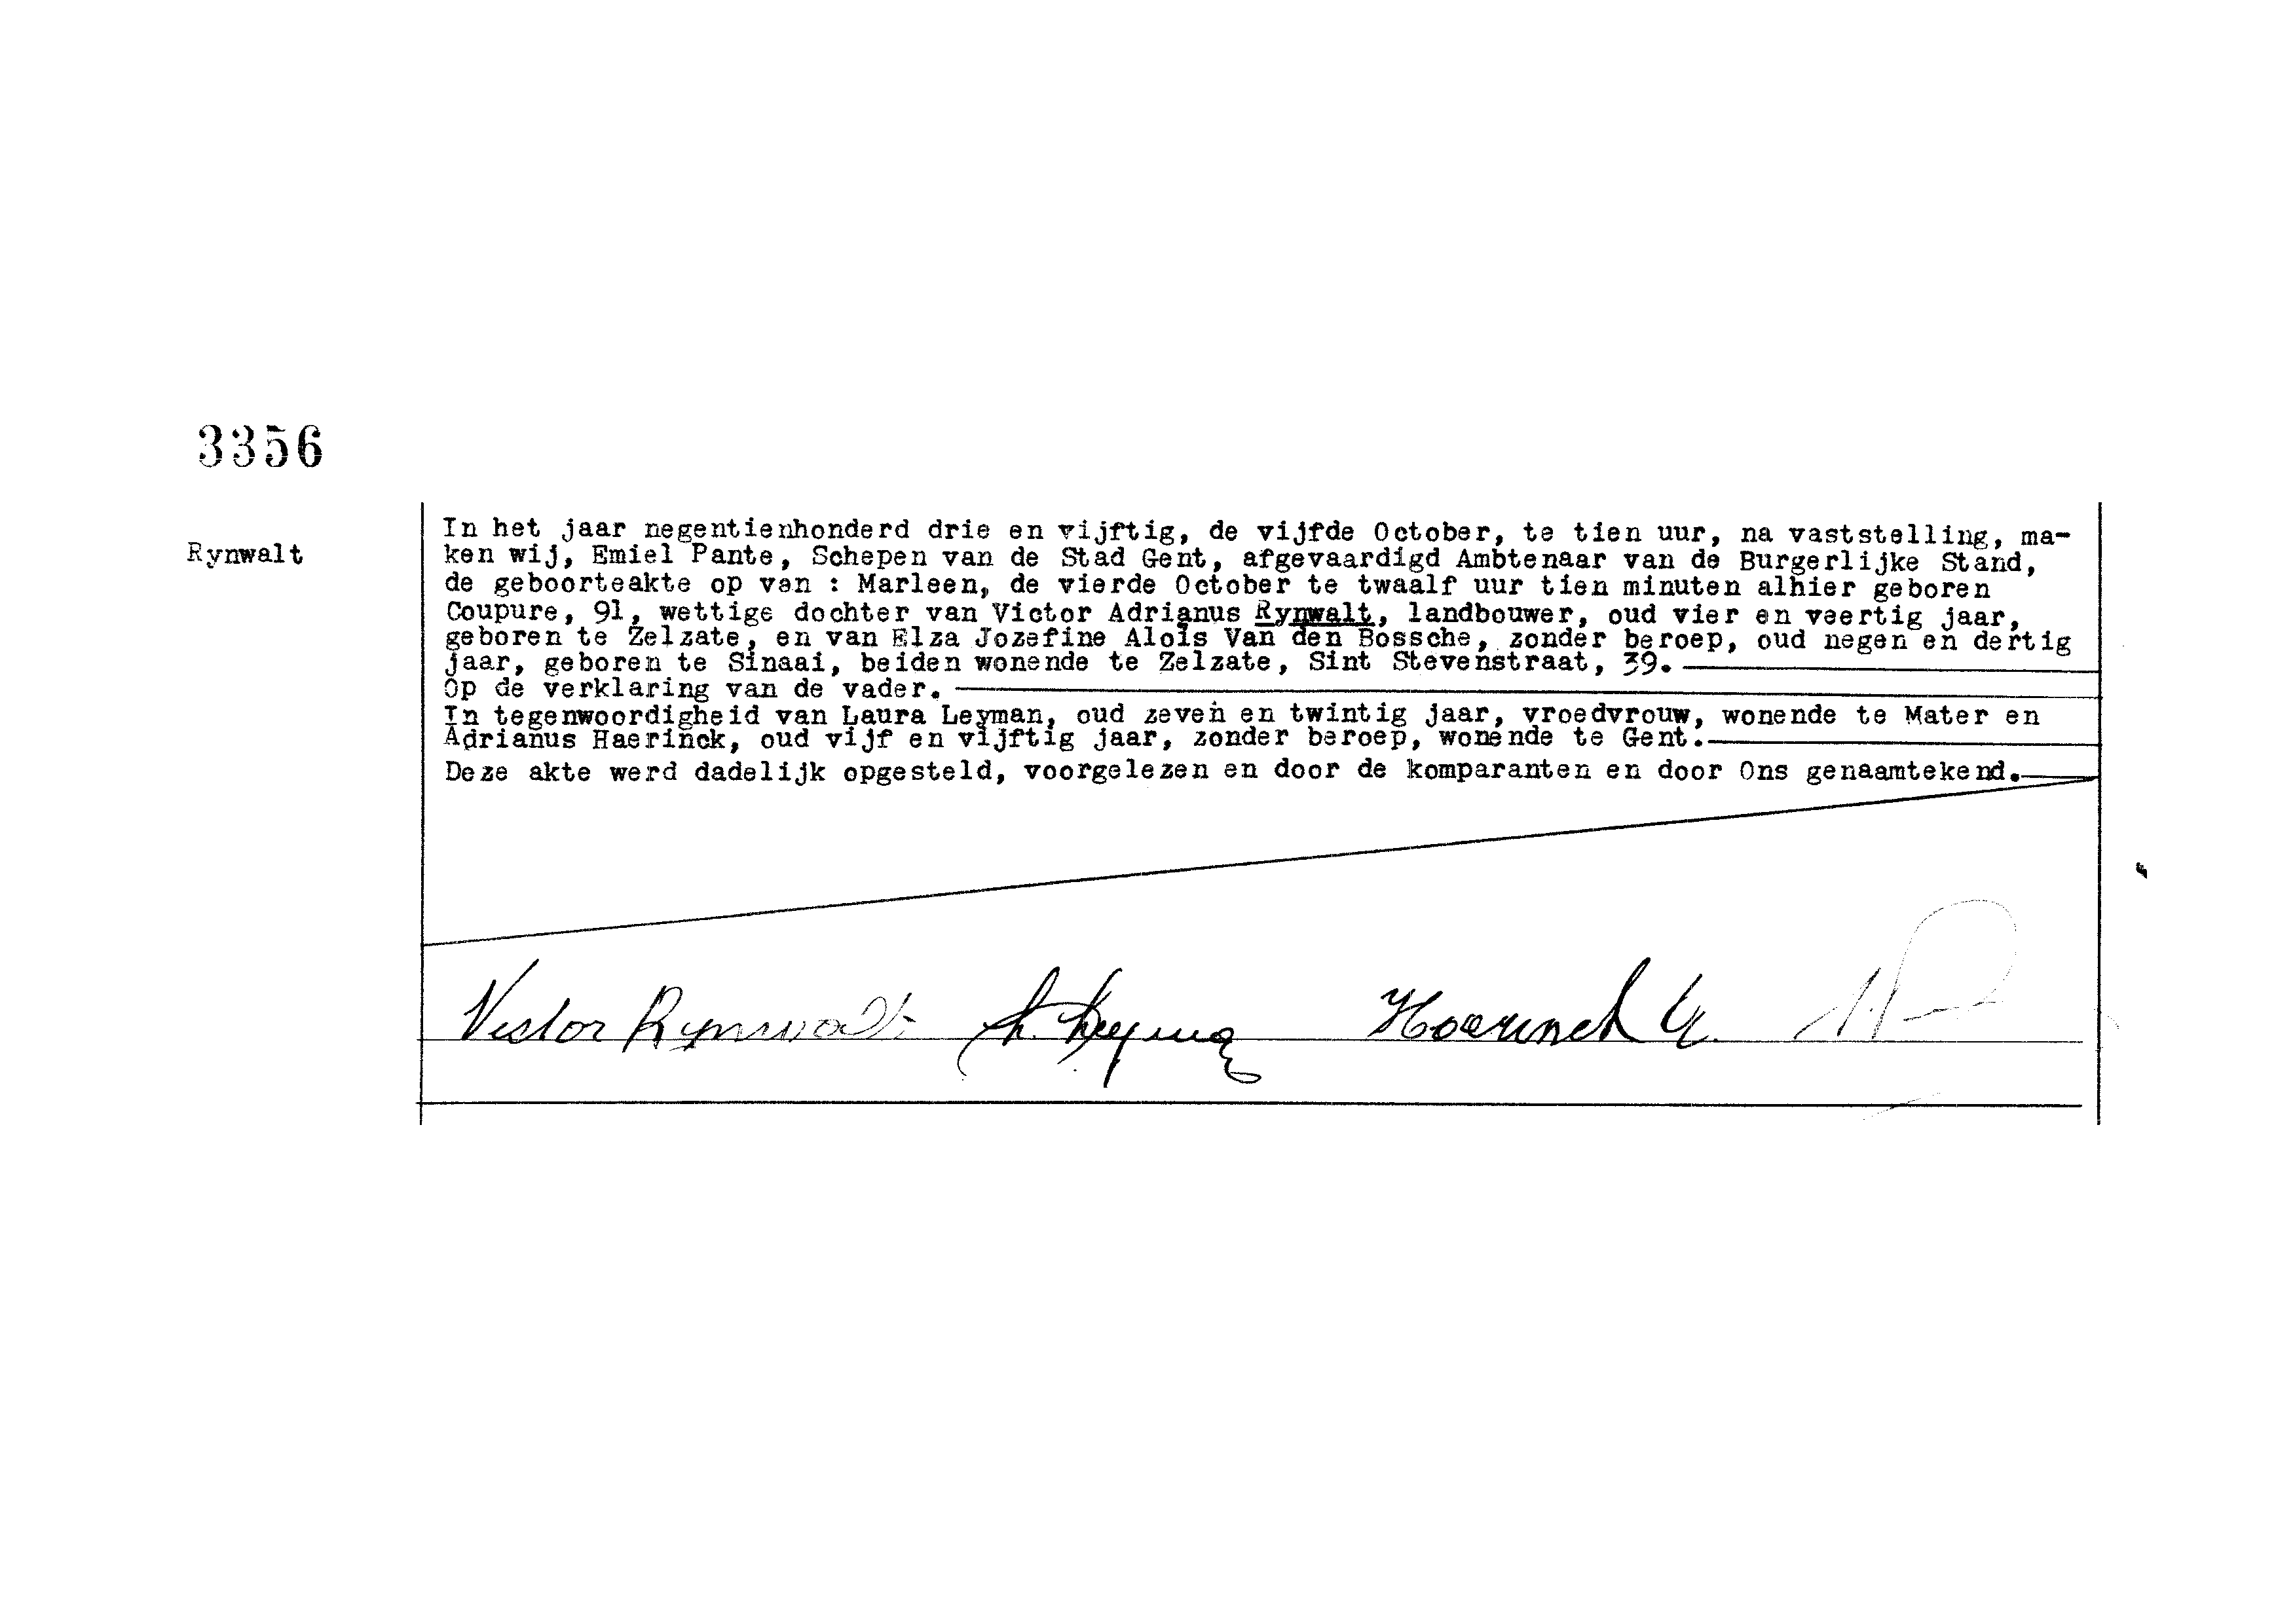 3356
Rynwalt
In het jaar negentienhonderd drie en vijftig, de vijfde October, te tien uur, na vaststelling, ma-
ken wij, Emiel Pante, Schepen van de Stad Gent, afgevaardigd Ambtenaar van de Burgerlijke Stand,
de geboorteakte op van : Marleen, de vierde October te twaalf uur tien minuten alhier geboren
Coupure, 91, wettige dochter van Victor Adrianus Rynwalt, landbouwer, oud vier en veertig jaar,
geboren te Zelzate, en van Elza Jozefine Alois Van den Bossche, zonder beroep, oud negen en dertig
jaar, geboren te Sinaai, beiden wonende te Zelzate, Sint Stevenstraat, 39.
Op de verklaring van de vader.
In tegenwoordigheid van Laura Leyman, oud zeven en twintig jaar, vroedvrouw, wonende te Mater en
Adrianus Haerinck, oud vijf en vijftig jaar, zonder beroep, wonende te Gent.
Deze akte werd dadelijk opgesteld, voorgelezen en door de komparanten en door Ons genaamtekend.
Victor Rynwalt L. Leyman Haerinck A.